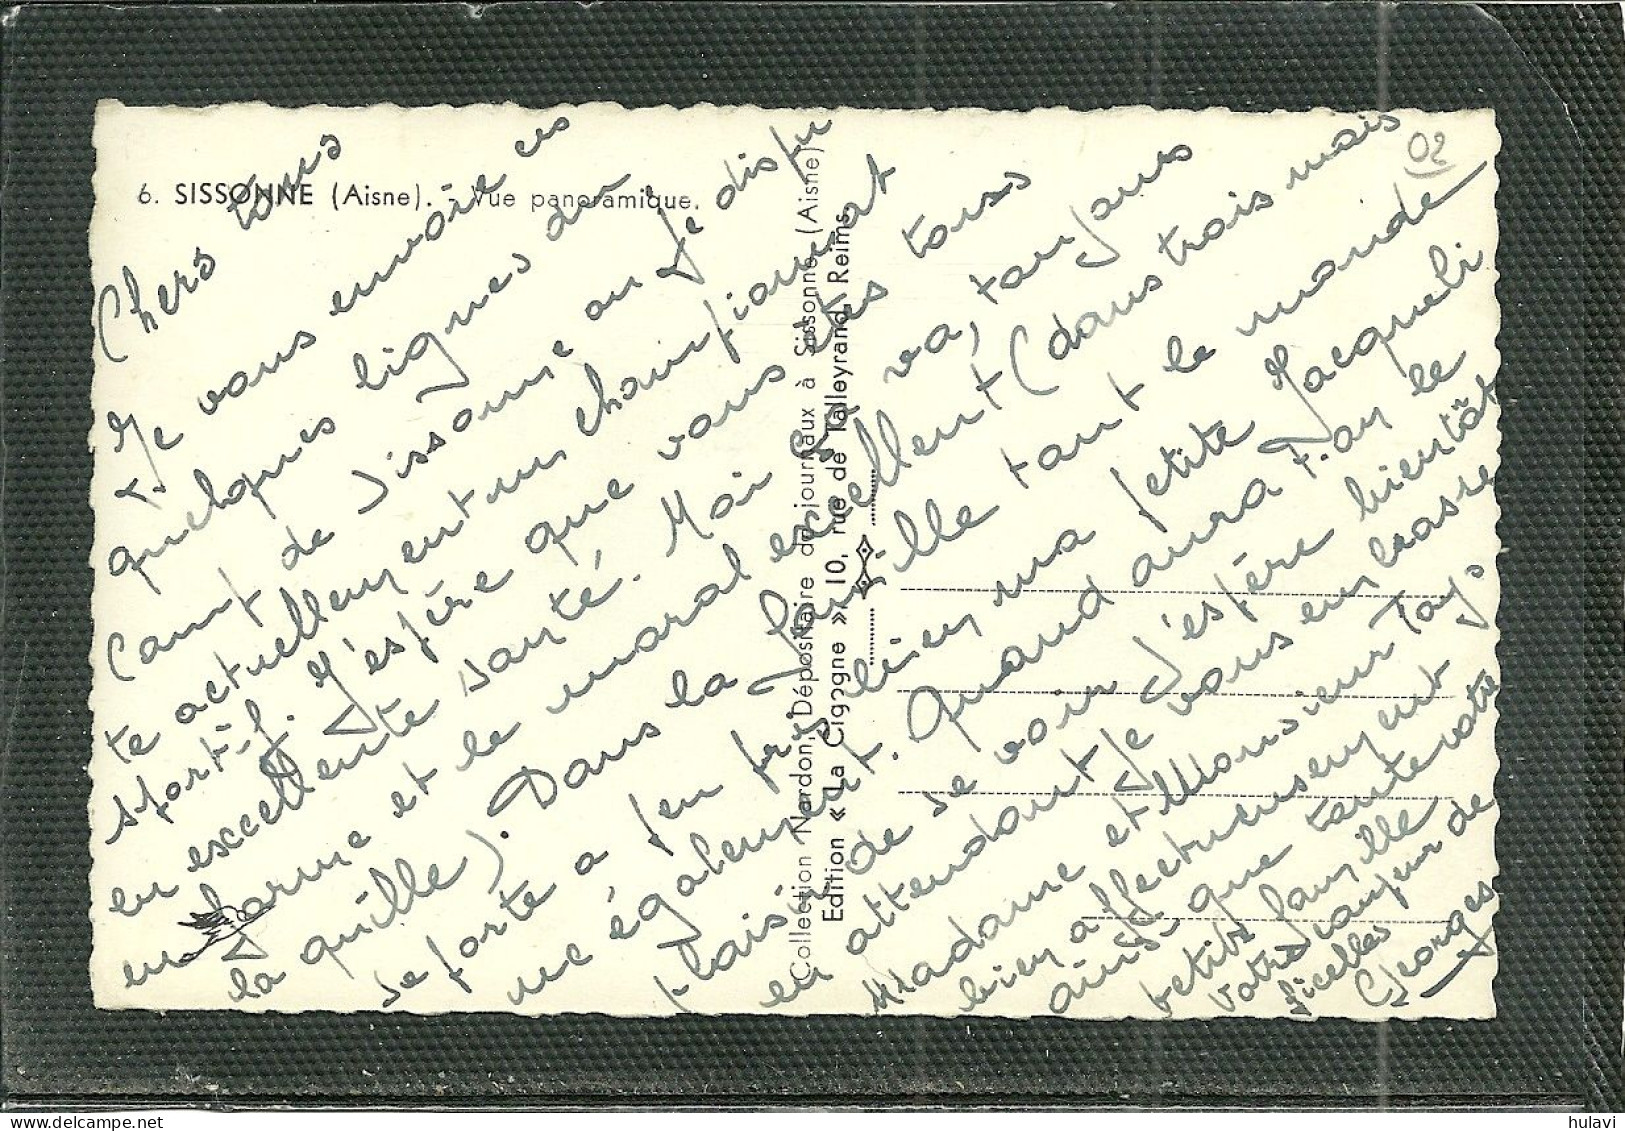 6. SISSONNE (Aisne). - Vue panoramique.
02
Chers tous
Je vous envoie ces
quelques lignes du
Camp de Sissonne ou Je dispu
te actuellement un championnat
sportif. J'espère que vous êtes tous
en excellente santé. Moi ça va, toujours
en forme et le moral excellent (dans trois mois
la quille). Dans la famille tout le monde
se porte a peu près bien ma petite Jacqueli
ne également. Quand aura t-on le
plaisir de se voir J'espère bientôt
en attendant Je vous embrasse
Madame et Monsieur
bien affectueusement
ainsi que tante votre
petite famille
votre
ficelles
Georges
Collection Nardon, Dépositaire de journaux à Sissonne (Aisne)
Edition « La Cigogne » 10, rue de Talleyrand, Reims.
hulavi